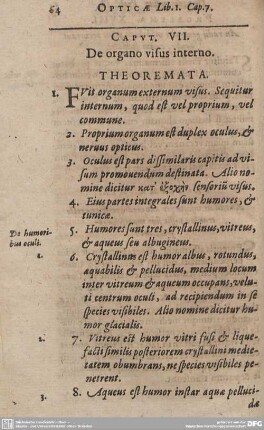 64 OPTICÆ Lib. 1. Cap. 7.
CAPVT. VII.
De organo visus interno.
THEOREMATA.
1. FVit organum externum visus. Sequitur
internum, quod est vel proprium, vel
commune.
2. Proprium organum est duplex oculus, &
neruus opticus.
3. Oculus est pars dissimilaris capitis ad vi-
sum promouendum destinata. Alio no-
mine dicitur κατ' ἐξοχὴν sensorii visus.
4. Eius partes integrales sunt humores, &
tunicæ.
De humori-
bus oculi.
5. Humores sunt tres, crystallinus, vitreus,
& aqueus seu albugineus.
1.
6. Crystallinus est humor albus, rotundus,
æquabilis & pellucidus, medium locum
inter vitreum & aqueum occupans, velu-
ti centrum oculi, ad recipiendum in se
species visibiles. Alio nomine dicitur hu-
mor glacialis.
2.
7. Vitreus est humor vitri fusi & lique-
facti similis posteriorem crystallini medie-
tatem obumbrans, ne species visibiles pe-
netrent.
3.
8. Aqueus est humor instar aquæ pelluci-
dæ